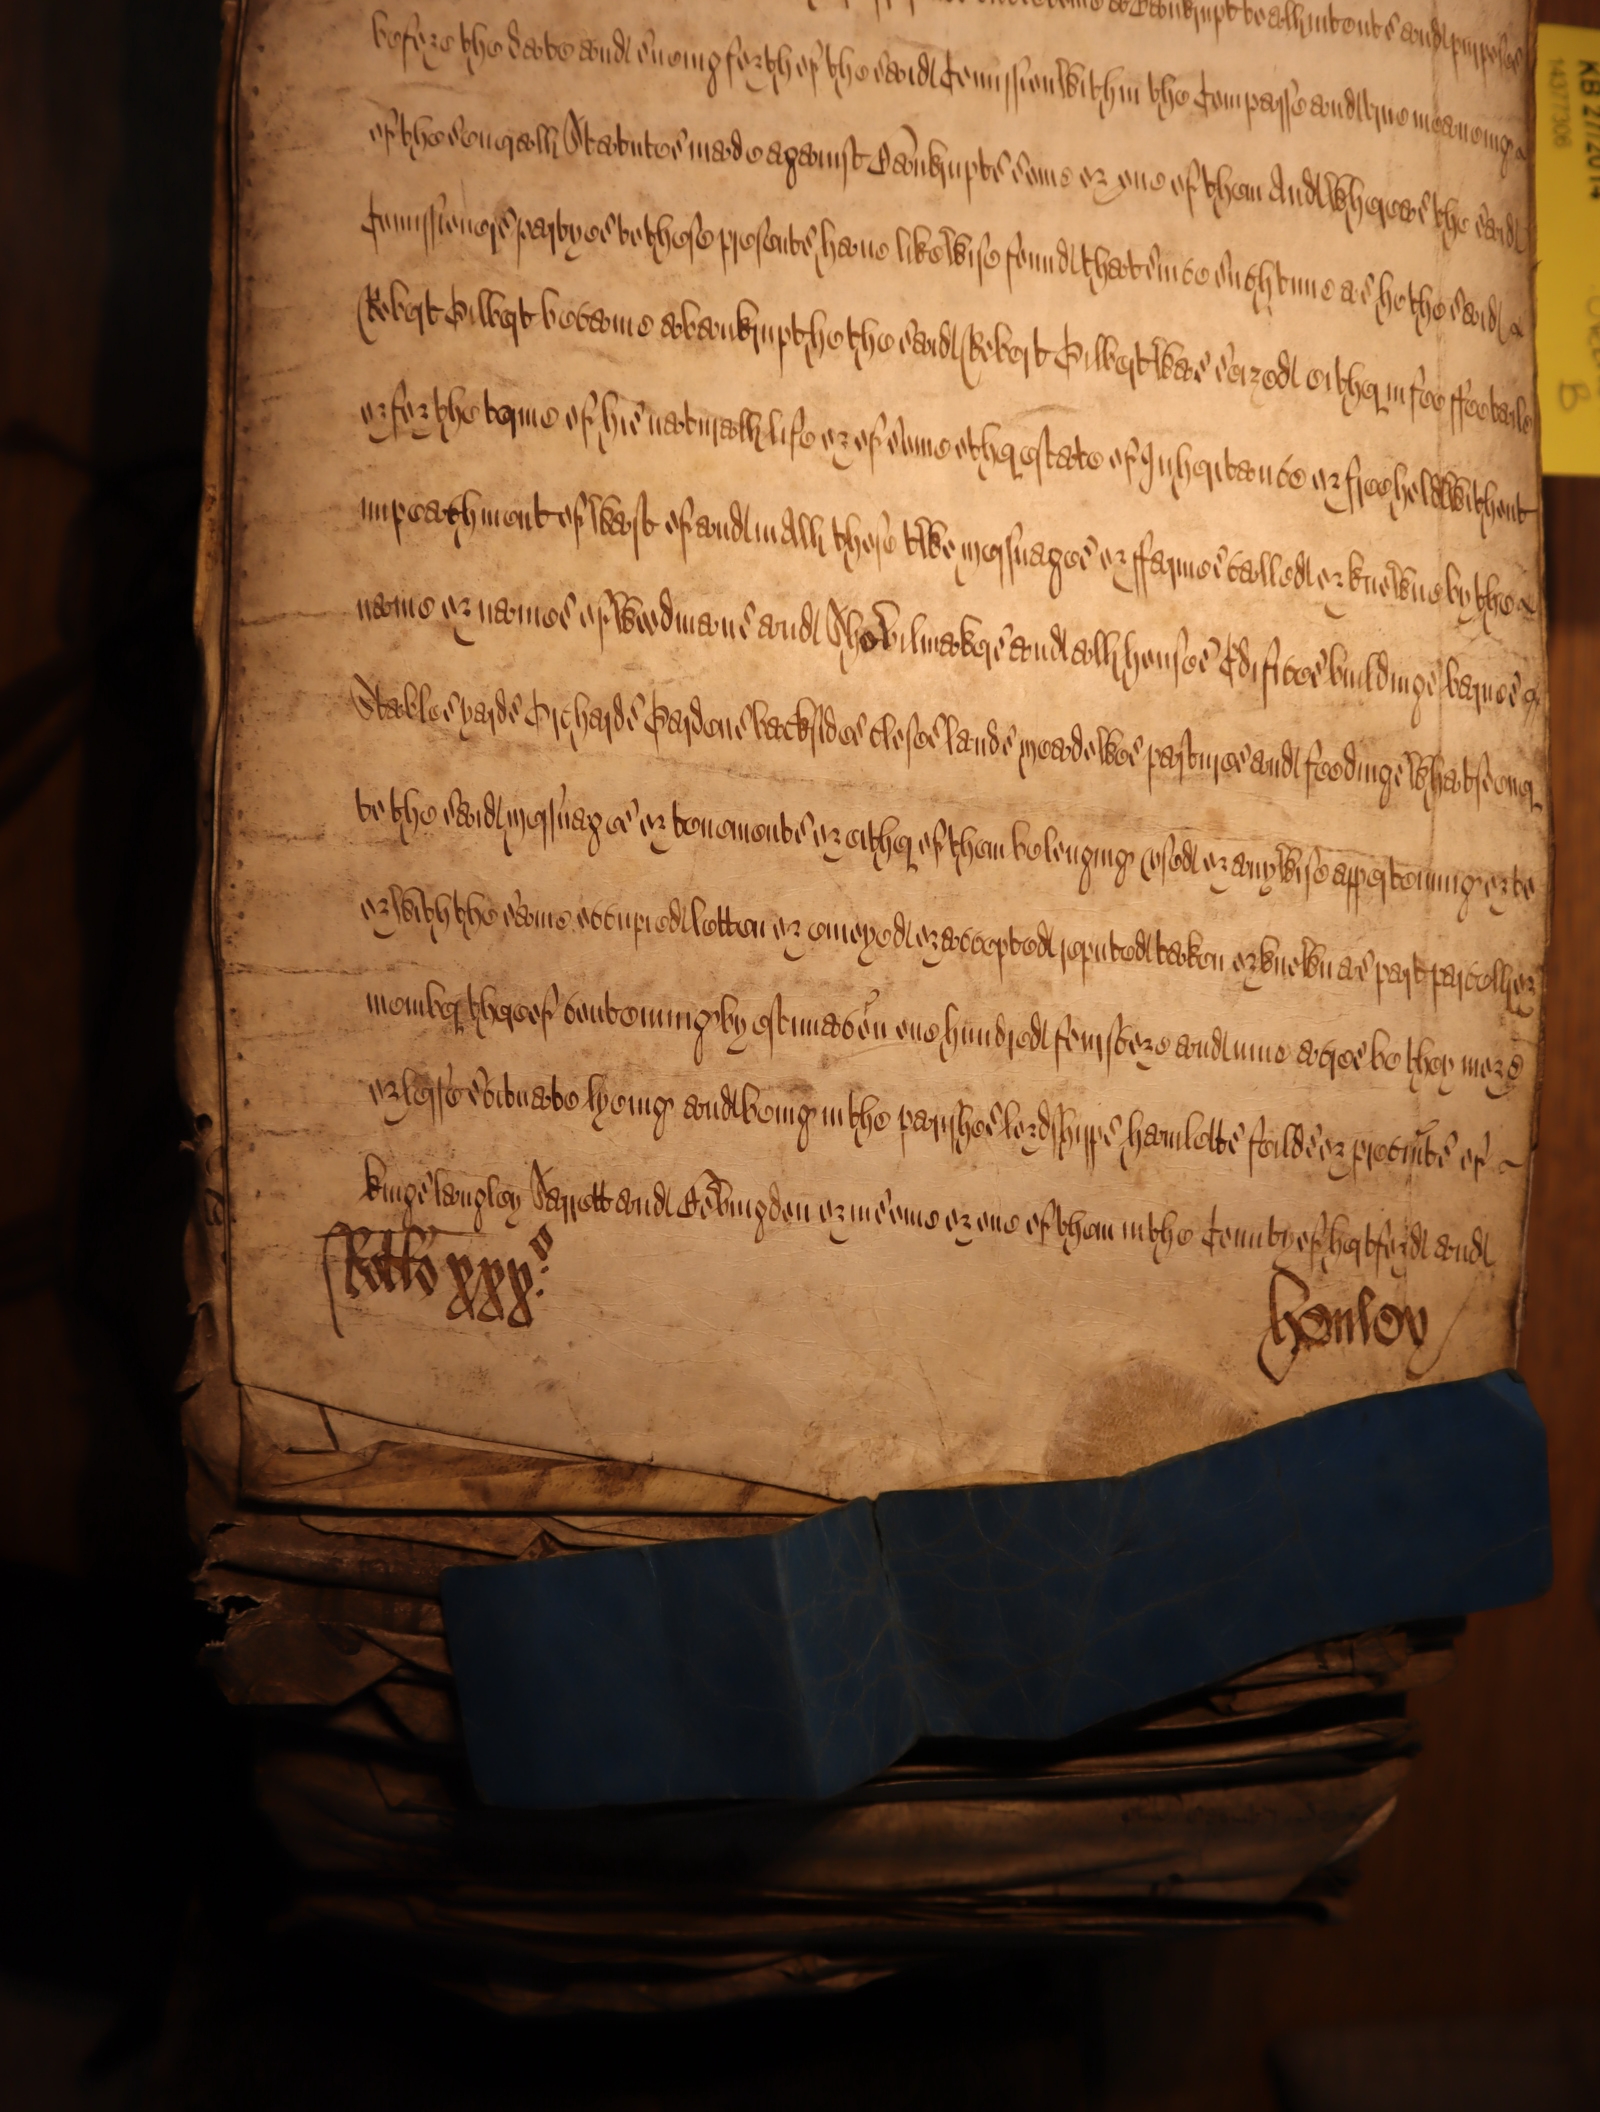 become a Bankrupt to all intents and purposes
before the date and sueing forth of the said Comission within the Compasse and true meaneing
of the severall Statutes made against Bankrupts some or one of them And whereas the said
Comissioners partyes to these presents have likewise found that since such time as he the said
Robert Gilbert became a bankrupt he the said Robert Gilbert was seized either in fee ffeetaile
or for the terme of his naturall life or of some other estate of Inheritance or freehold without
impeachment of wast of and in All those two messuages or ffarmes called or knowne by the
name or names of Woodmans and Shovilmakers and all houses Edifices buildings barnes
Stables yards Orchards Gardens backsides closes lands meadowes pastures and feedings whatsoever
to the said messuages or tenements or either of them belonging used or anywise apperteining or to
or with the same occupied letten or enioyed or accepted reputed taken or knowne as part parcell or
member thereof conteining by estimacon one hundred fourscore and nine acres be they more
or lesse scituate lyeing and being in the parishes lordshipps hamletts feilds or precincts of
Kings langley Sarrett and Bovingden or in some or one of them in the County of hertford and
Rotlo xxx°
henley
KB 27/2014
1437306
B